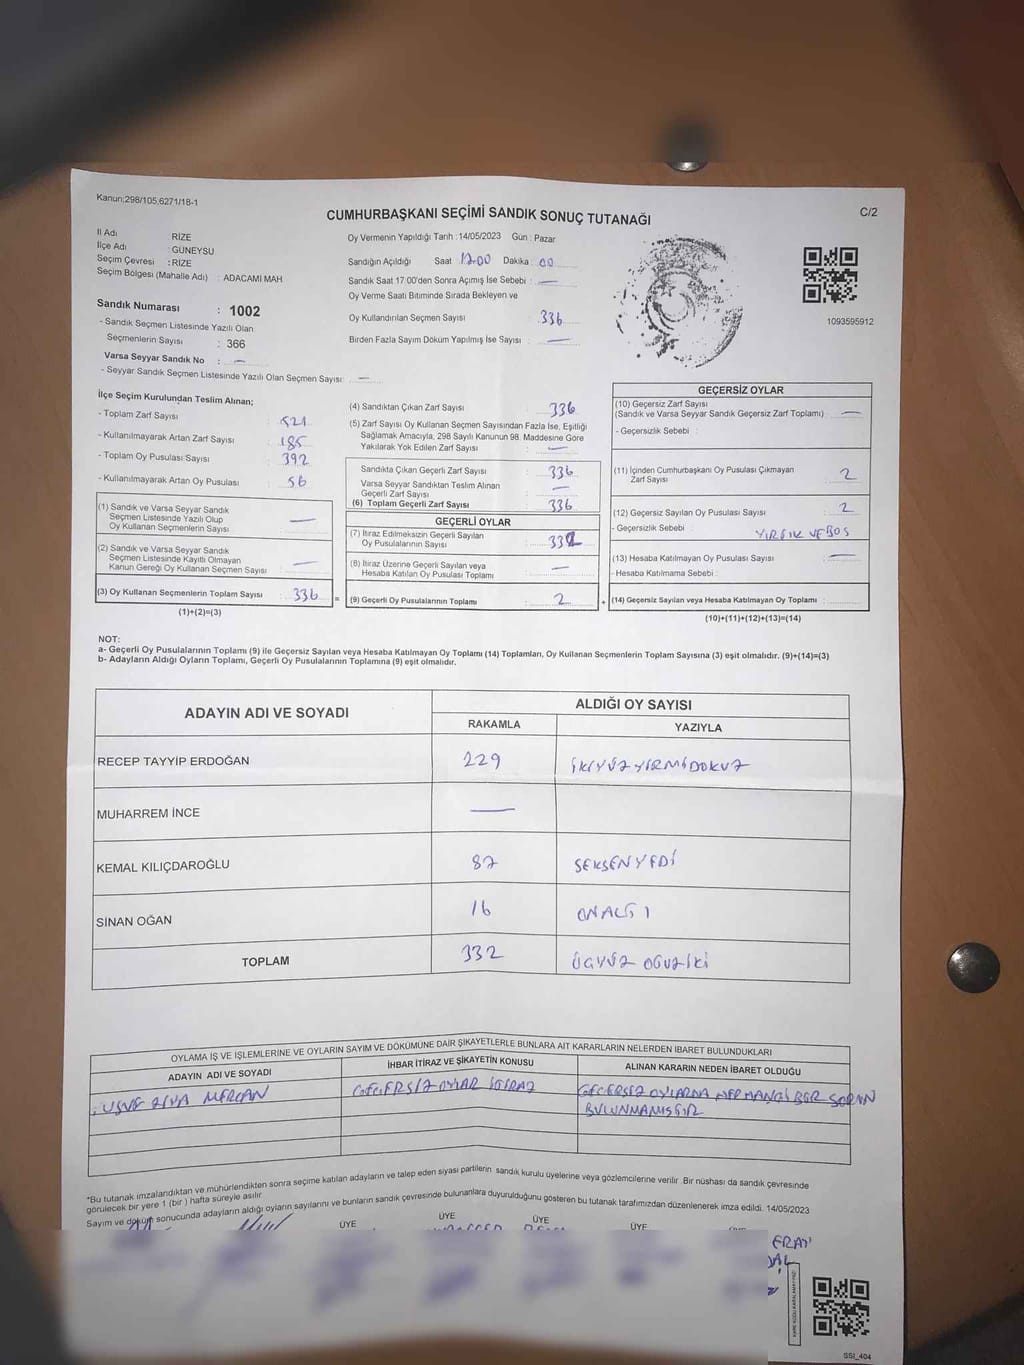 Kanun;298/105,6271/18-1
C/2
CUMHURBAŞKANI SEÇİMİ SANDIK SONUÇ TUTANAĞI
İl Adı RİZE
İlçe Adı : GÜNEYSU
Seçim Çevresi : RİZE
Seçim Bölgesi (Mahalle Adı) : ADACAMI MAH
Sandık Numarası : 1002
- Sandık Seçmen Listesinde Yazılı Olan
Seçmenlerin Sayısı : 366
Varsa Seyyar Sandık No : —
- Seyyar Sandık Seçmen Listesinde Yazılı Olan Seçmen Sayısı: —
Oy Vermenin Yapıldığı Tarih :14/05/2023 Gün : Pazar
Sandığın Açıldığı Saat 17.00 Dakika : 00
Sandık Saat 17:00'den Sonra Açımış İse Sebebi : —
Oy Verme Saati Bitiminde Sırada Bekleyen ve
Oy Kullandırılan Seçmen Sayısı 336
Birden Fazla Sayım Döküm Yapılmış İse Sayısı : —
1093595912
İlçe Seçim Kurulundan Teslim Alınan;
- Toplam Zarf Sayısı : 521
- Kullanılmayarak Artan Zarf Sayısı : 185
- Toplam Oy Pusulası Sayısı : 392
- Kullanılmayarak Artan Oy Pusulası : 56
(1) Sandık ve Varsa Seyyar Sandık
Seçmen Listesinde Yazılı Olup
Oy Kullanan Seçmenlerin Sayısı —
(2) Sandık ve Varsa Seyyar Sandık
Seçmen Listesinde Kayıtlı Olmayan
Kanun Gereği Oy Kullanan Seçmen Sayısı : —
(3) Oy Kullanan Seçmenlerin Toplam Sayısı : 336 =
(1)+(2)=(3)
(4) Sandıktan Çıkan Zarf Sayısı 336
(5) Zarf Sayısı Oy Kullanan Seçmen Sayısından Fazla İse, Eşitliği
Sağlamak Amacıyla, 298 Sayılı Kanunun 98. Maddesine Göre
Yakılarak Yok Edilen Zarf Sayısı : —
Sandıkta Çıkan Geçerli Zarf Sayısı 336
Varsa Seyyar Sandıktan Teslim Alınan
Geçerli Zarf Sayısı —
(6) Toplam Geçerli Zarf Sayısı 336
GEÇERLİ OYLAR
(7) İtiraz Edilmeksizin Geçerli Sayılan
Oy Pusulalarının Sayısı : 332
(8) İtiraz Üzerine Geçerli Sayılan veya
Hesaba Katılan Oy Pusulası Toplamı : —
(9) Geçerli Oy Pusulalarının Toplamı : 2 +
GEÇERSİZ OYLAR
(10) Geçersiz Zarf Sayısı
(Sandık ve Varsa Seyyar Sandık Geçersiz Zarf Toplamı) : —
- Geçersizlik Sebebi :
(11) İçinden Cumhurbaşkanı Oy Pusulası Çıkmayan
Zarf Sayısı : 2
(12) Geçersiz Sayılan Oy Pusulası Sayısı : 2
- Geçersizlik Sebebi : YIRTIK VE BOŞ
(13) Hesaba Katılmayan Oy Pusulası Sayısı : —
- Hesaba Katılmama Sebebi :
(14) Geçersiz Sayılan veya Hesaba Katılmayan Oy Toplamı :
(10)+(11)+(12)+(13)=(14)
NOT:
a- Geçerli Oy Pusulalarının Toplamı (9) ile Geçersiz Sayılan veya Hesaba Katılmayan Oy Toplamı (14) Toplamları, Oy Kullanan Seçmenlerin Toplam Sayısına (3) eşit olmalıdır. (9)+(14)=(3)
b- Adayların Aldığı Oyların Toplamı, Geçerli Oy Pusulalarının Toplamına (9) eşit olmalıdır.
ADAYIN ADI VE SOYADI ALDIĞI OY SAYISI
RAKAMLA YAZIYLA
RECEP TAYYİP ERDOĞAN 229 İKİYÜZYİRMİDOKUZ
MUHARREM İNCE —
KEMAL KILIÇDAROĞLU 87 SEKSENYEDİ
SİNAN OĞAN 16 ONALTI
TOPLAM 332 ÜÇYÜZ OTUZİKİ
OYLAMA İŞ VE İŞLEMLERİNE VE OYLARIN SAYIM VE DÖKÜMÜNE DAİR ŞİKAYETLERLE BUNLARA AİT KARARLARIN NELERDEN İBARET BULUNDUKLARI
ADAYIN ADI VE SOYADI İHBAR İTİRAZ VE ŞİKAYETİN KONUSU ALINAN KARARIN NEDEN İBARET OLDUĞU
ZİYA MERCAN GEÇERSİZ OYLAR İTİRAZ GEÇERSİZ OYLARDA HERHANGİ BİR SORUN
BULUNMAMIŞTIR
*Bu tutanak imzalandıktan ve mühürlendikten sonra seçime katılan adayların ve talep eden siyasi partilerin sandık kurulu üyelerine veya gözlemcilerine verilir .Bir nüshası da sandık çevresinde
görülecek bir yere 1 (bir ) hafta süreyle asılır.
Sayım ve döküm sonucunda adayların aldığı oyların sayılarını ve bunların sandık çevresinde bulunanlara duyurulduğunu gösteren bu tutanak tarafımızdan düzenlenerek imza edildi. 14/05/2023
ÜYE ÜYE ÜYE ÜYE
SSI_404